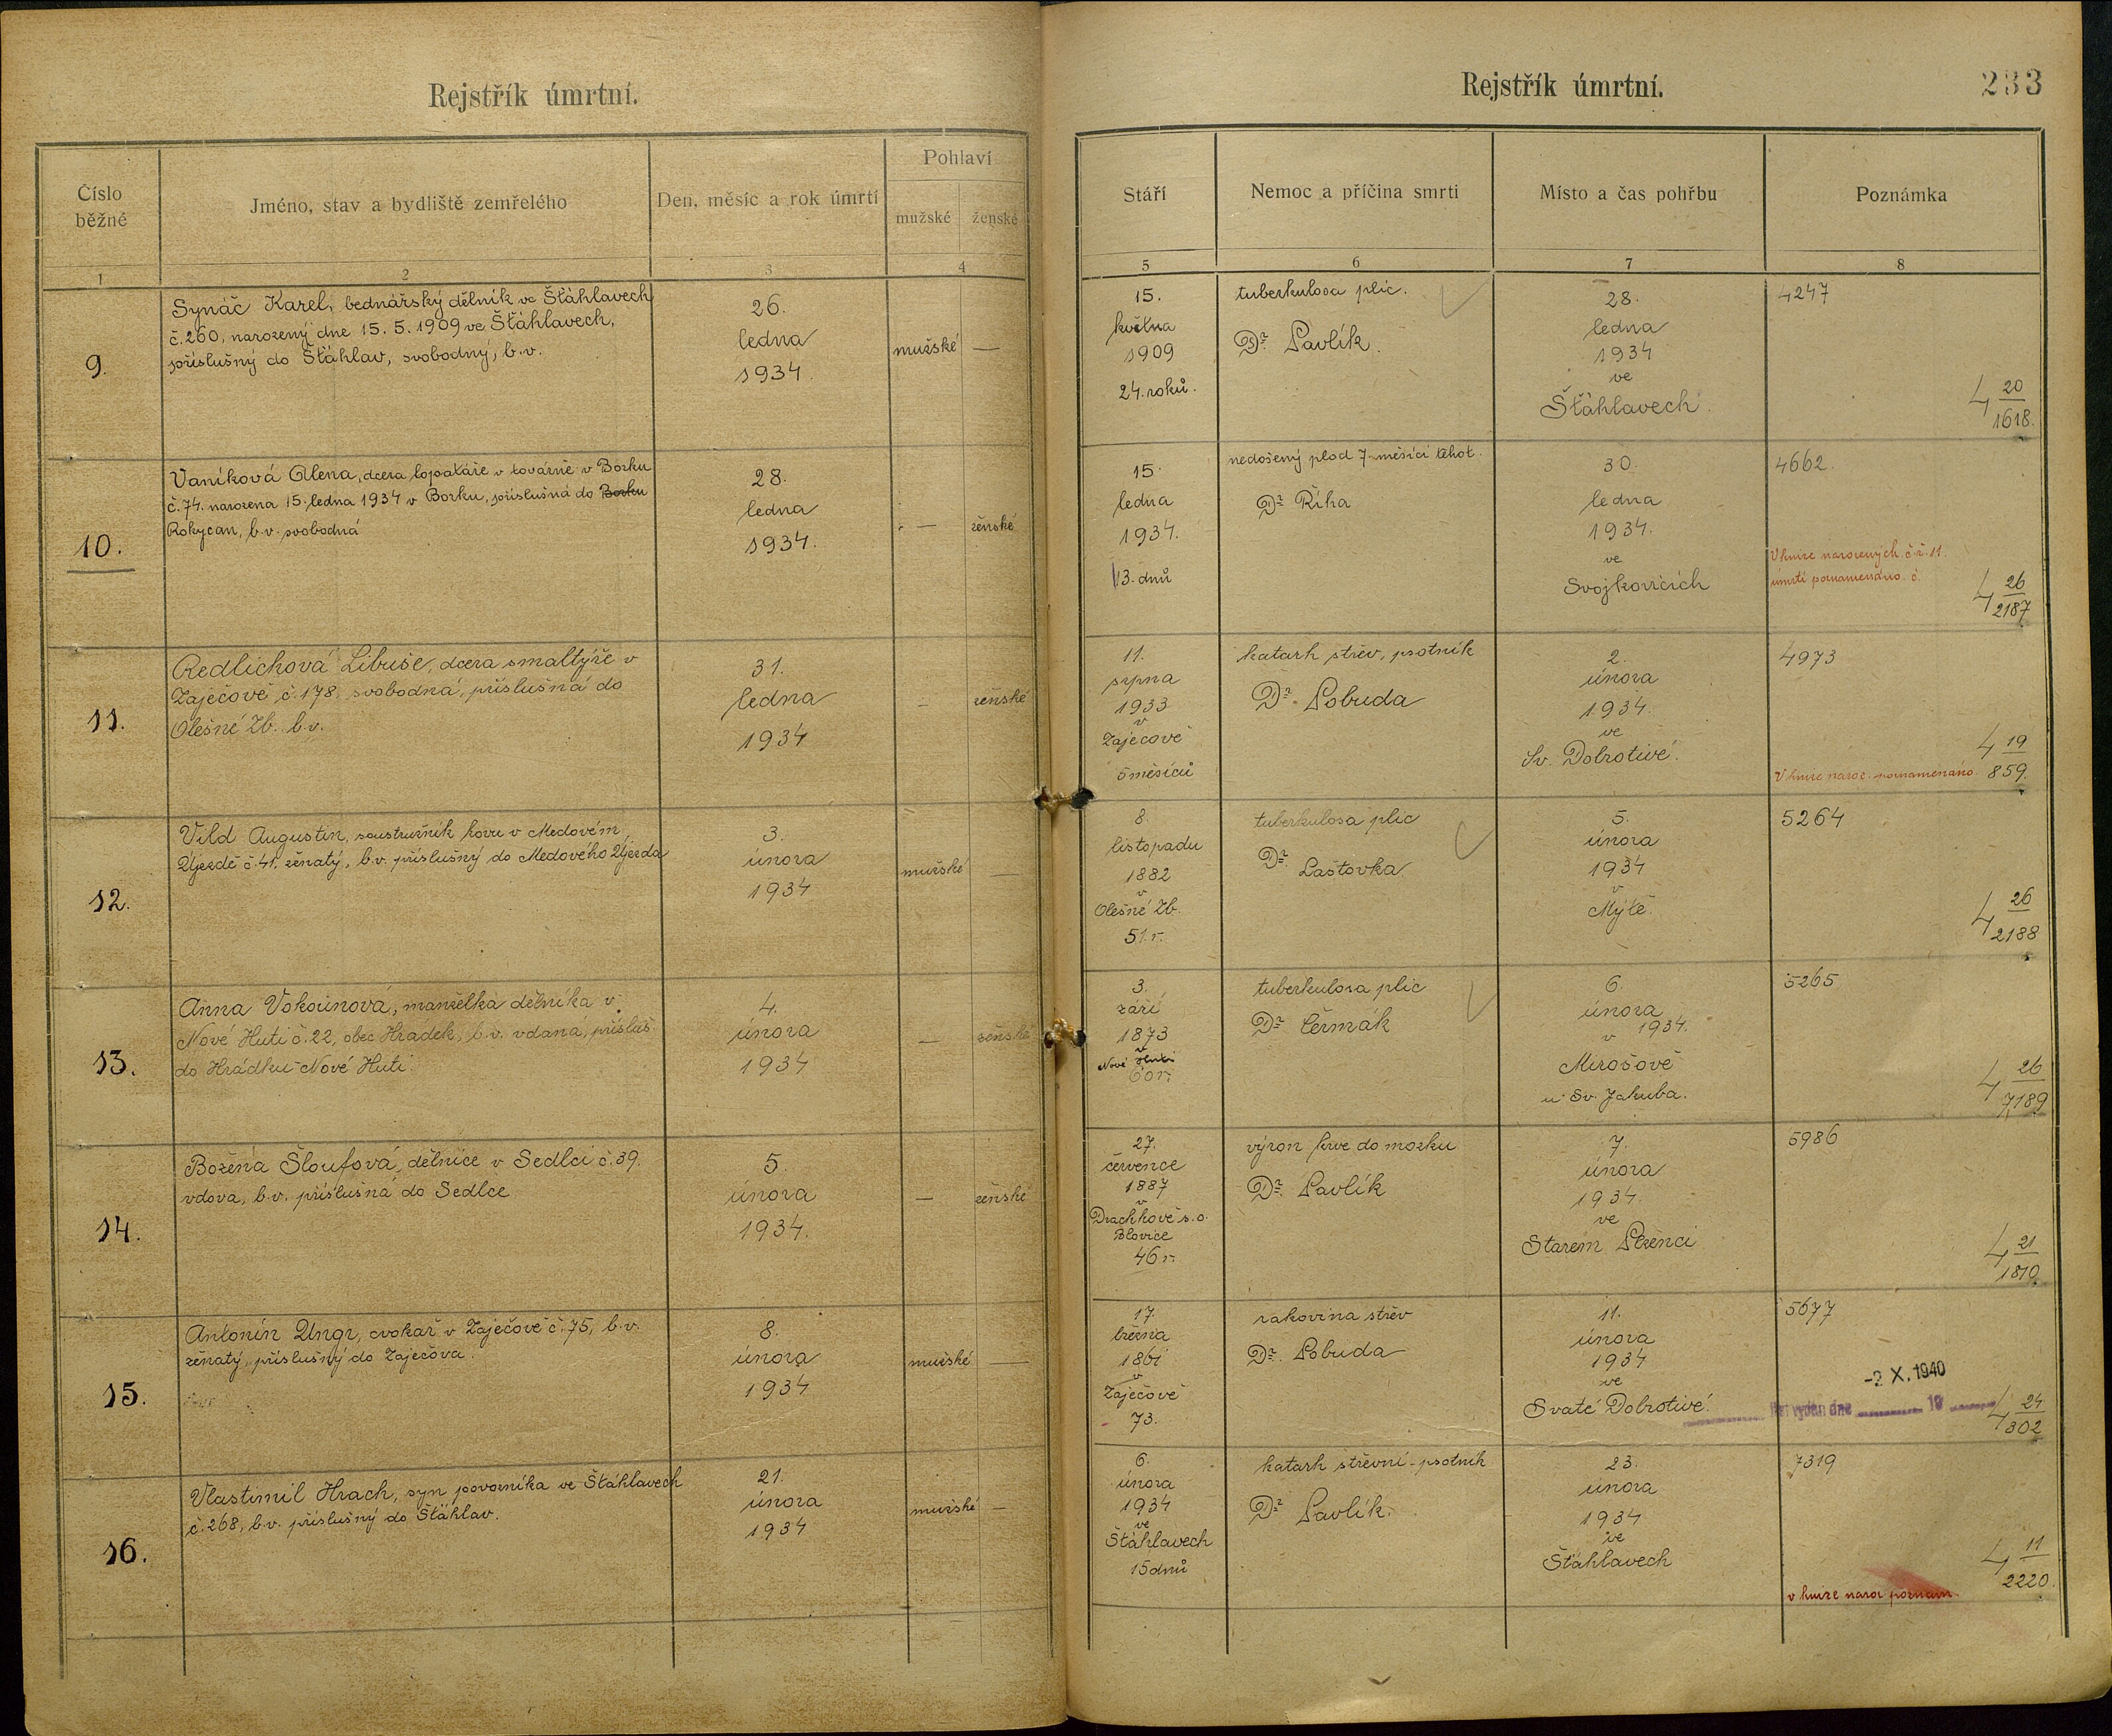 Rejstřík úmrtní.
Číslo
běžné
Jméno, stav a bydliště zemřelého
Den, měsíc a rok úmrtí
Pohlaví
mužské
ženské
1
2
3
4
9.
Synáč Karel, bednářský dělník ve Šťáhlavech
č. 260, narozený dne 15. 5. 1909 ve Šťáhlavech,
příslušný do Šťáhlav, svobodný, b.v.
26.
ledna
1934.
mužské —
10.
Vaníková Alena, dcera lopatáře v továrně v Borku
č. 74. narozena 15. ledna 1934 v Borku, příslušná do Borku
Rokycan, b.v. svobodná
28.
ledna
1934.
— ženské
11.
Redlichová Libuše, dcera smaltýře v
Zaječově č. 178, svobodná, příslušná do
Olešné Zb. b.v.
31.
ledna
1934
— ženské
12.
Vild Augustin, soustružník kovu v Medovém
Újezdě č. 41, ženatý, b.v. příslušný do Medového Újezda
3.
února
1934
mužské —
13.
Anna Vokounová, manželka dělníka v
Nové Huti č. 22, obec Hrádek, b.v. vdaná, přísluš.
do Hrádku-Nové Huti.
4.
února
1934
— ženské
14.
Božena Šloufová, dělnice v Sedlci č. 39.
vdova, b.v. příslušná do Sedlce
5.
února
1934.
— ženské
15.
Antonín Ungr, cvokař v Zaječově č. 75, b.v.
ženatý, příslušný do Zaječova.
8.
února
1934
mužské —
16.
Vlastimil Hrach, syn povozníka ve Šťáhlavech
č. 268, b.v. příslušný do Šťáhlav.
21.
února
1934
mužské —
Rejstřík úmrtní.
233
Stáří
Nemoc a příčina smrti
Místo a čas pohřbu
Poznámka
5
6
7
8
15.
května
1909
24. roků.
tuberkulosa plic.
Dr. Pavlík.
28.
ledna
1934
ve
Šťáhlavech.
4247
4 20
1618.
15.
ledna
1934.
13. dnů
nedošený plod 7-měsíci těhot.
Dr. Říha
30.
ledna
1934.
ve
Svojkovicích
4662.
V knize narozených č.ř. 11.
úmrtí poznamenáno. č.
4 26
2187
11.
srpna
1933
v
Zaječově
5 měsíců
katarh střev, psotník
Dr. Pobuda
2.
února
1934.
ve
Sv. Dobrotivé.
4973
V knize naroz. poznamenáno.
4 19
859.
8.
listopadu
1882
v
Olešné Zb.
51. r.
tuberkulosa plic
Dr. Laštovka.
5.
února
1934
v
Mýtě.
5264
4 26
2188
3.
září
1873
v
Nové Huti
60 r.
tuberkulosa plic
Dr. Čermák
6.
února
1934.
v
Mirošově
u Sv. Jakuba.
5265
4 26
7189
27.
července
1887
v
Drachkově s. o.
Blovice
46 r.
výron krve do mozku
Dr. Pavlík
7.
února
1934.
ve
Starém Plzenci
5986
4 21
1810.
17.
března
1861
v
Zaječově
73.
rakovina střev
Dr. Pobuda
11.
února
1934
ve
Svaté Dobrotivé.
5677
-2 X. 1940
vydán dne 19
4 24
302
6.
února
1934
ve
Šťáhlavech
15 dnů
katarh střevní - psotník
Dr. Pavlík.
23.
února
1934
ve
Šťáhlavech
7319
v knize naroz poznam.
4 11
2220.